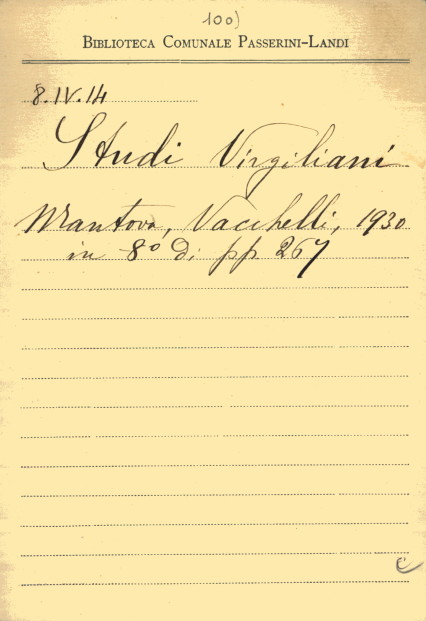 100)
BIBLIOTECA COMUNALE PASSERINI-LANDI
8.IV.14
Studi Virgiliani
Mantova, Vacchelli, 1930
in 8º di pp 267
C